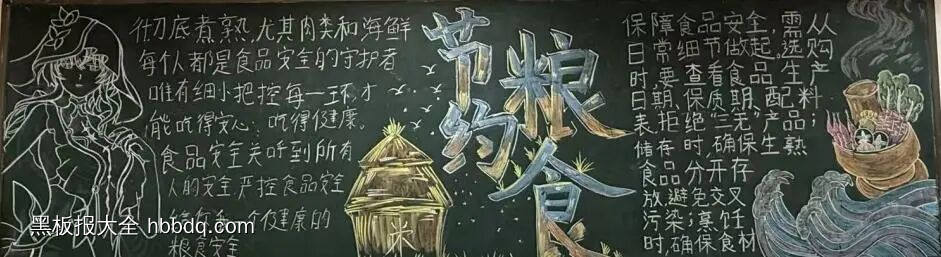 彻底煮熟,尤其肉类和海鲜
每 都是食品安全的守护者
唯有细小把控每一环,才
能吃得安心,吃得健康。
食品安全关乎到所有
人的安全严控食品安全
健康的
粮食安全
黑板报大全 hbbdq.com
节约
粮食
米
保障食品安全,需从
日常细节做起。选购
时,要查看食品生产
日期、保质期、配料
表,拒绝“三无”产品;
储存时,确保生熟
食品分开存
放,避免交叉
污染;烹饪
时,确保食材